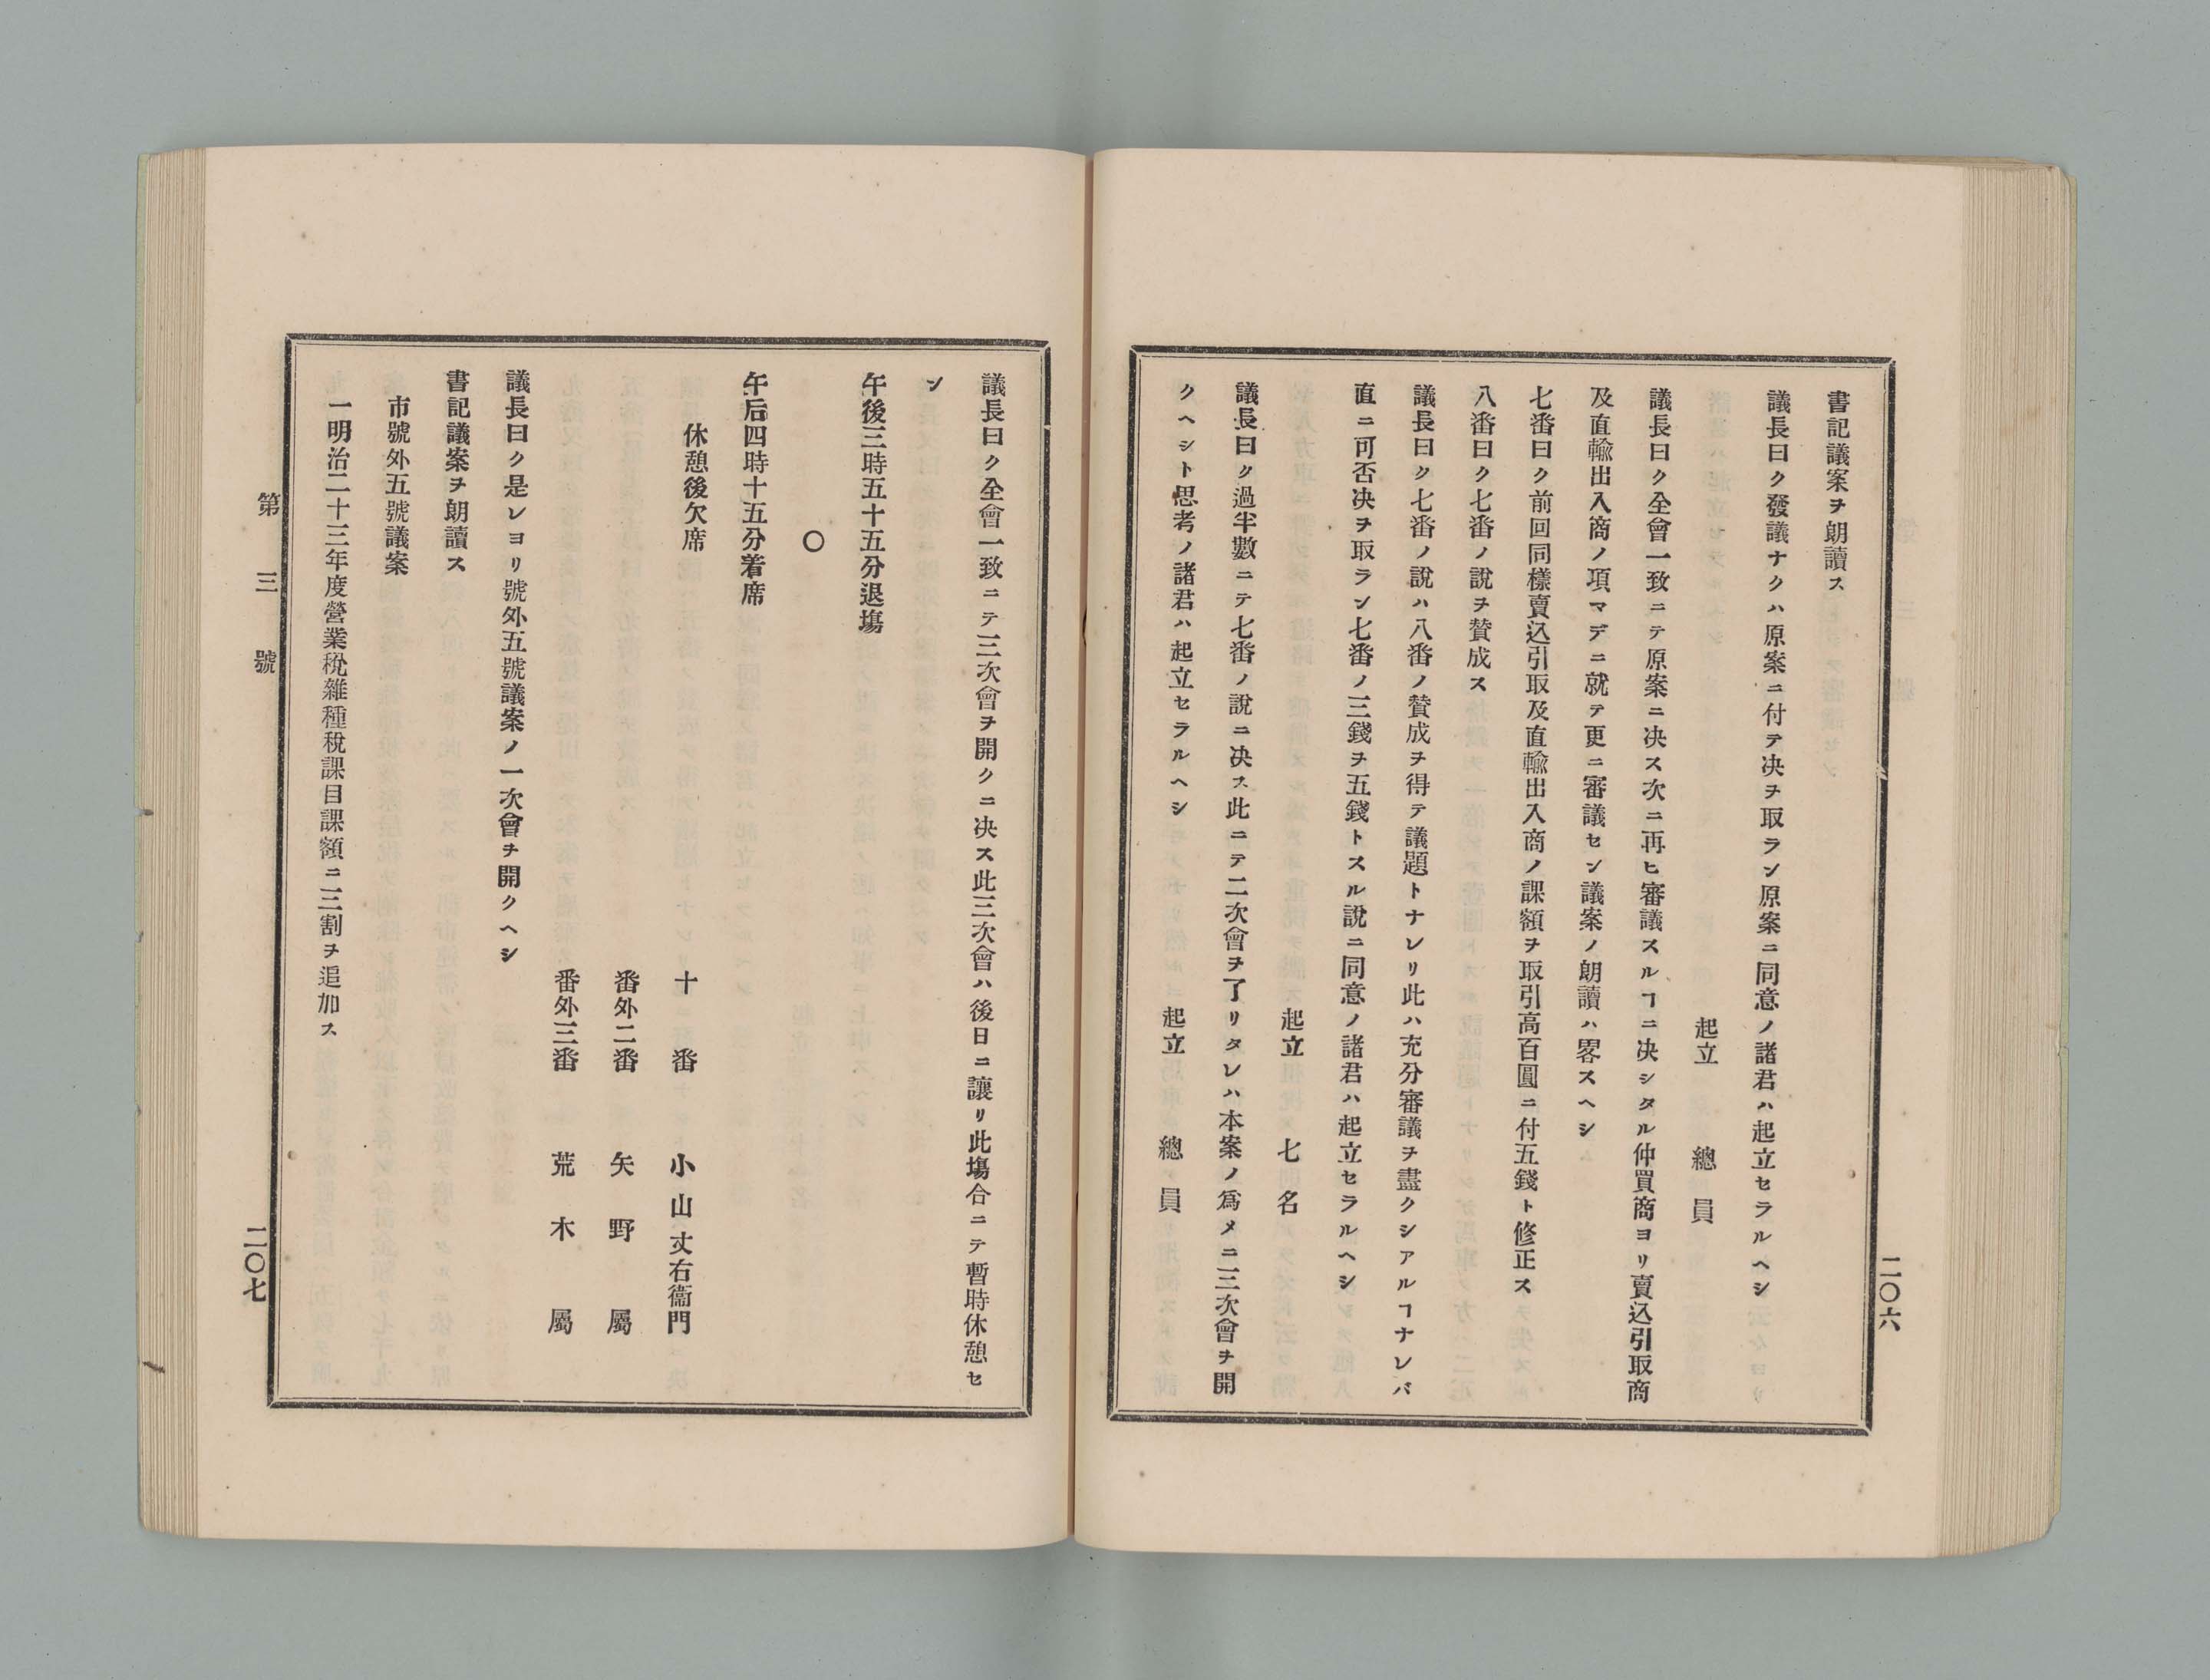 二〇六
書記議案ヲ朗讀ス
議長曰ク發議ナクハ原案ニ付テ决ヲ取ラン原案ニ同意ノ諸君ハ起立セラルヘシ
起立　總員
議長曰ク全會一致ニテ原案ニ决ス次ニ再ヒ審議スルヿニ决シタル仲買商ヨリ賣込引取商
及直輸出入商ノ項マデニ就テ更ニ審議セン議案ノ朗讀ハ畧スヘシ
七番曰ク前回同樣賣込引取及直輸出入商ノ課額ヲ取引高百圓ニ付五錢ト修正ス
八番曰ク七番ノ說ヲ賛成ス
議長曰ク七番ノ說ハ八番ノ賛成ヲ得テ議題トナレリ此ハ充分審議ヲ盡クシアルヿナレバ
直ニ可否决ヲ取ラン七番ノ三錢ヲ五錢トスル說ニ同意ノ諸君ハ起立セラルヘシ
起立　七名
議長曰ク過半數ニテ七番ノ說ニ决ス此ニテ二次會ヲ了リタレハ本案ノ爲メニ三次會ヲ開
クヘシト思考ノ諸君ハ起立セラルヘシ
起立　總員
議長曰ク全會一致ニテ三次會ヲ開クニ决ス此三次會ハ後日ニ讓リ此塲合ニテ暫時休憩セ
ン
午後三時五十五分退塲
〇
午后四時十五分着席
休憩後欠席
十番　小山丈右衞門
番外二番　矢野屬
番外三番　荒木屬
議長曰ク是レヨリ號外五號議案ノ一次會ヲ開クヘシ
書記議案ヲ朗讀ス
市號外五號議案
一明治二十三年度營業稅雜種稅課目課額ニ三割ヲ追加ス
第三號
二〇七